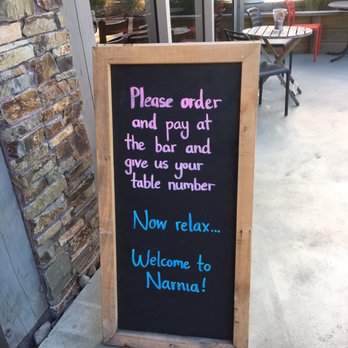 Please order
and pay at
the bar and
give us your
table number
Now relax...
Welcome to
Narnia!